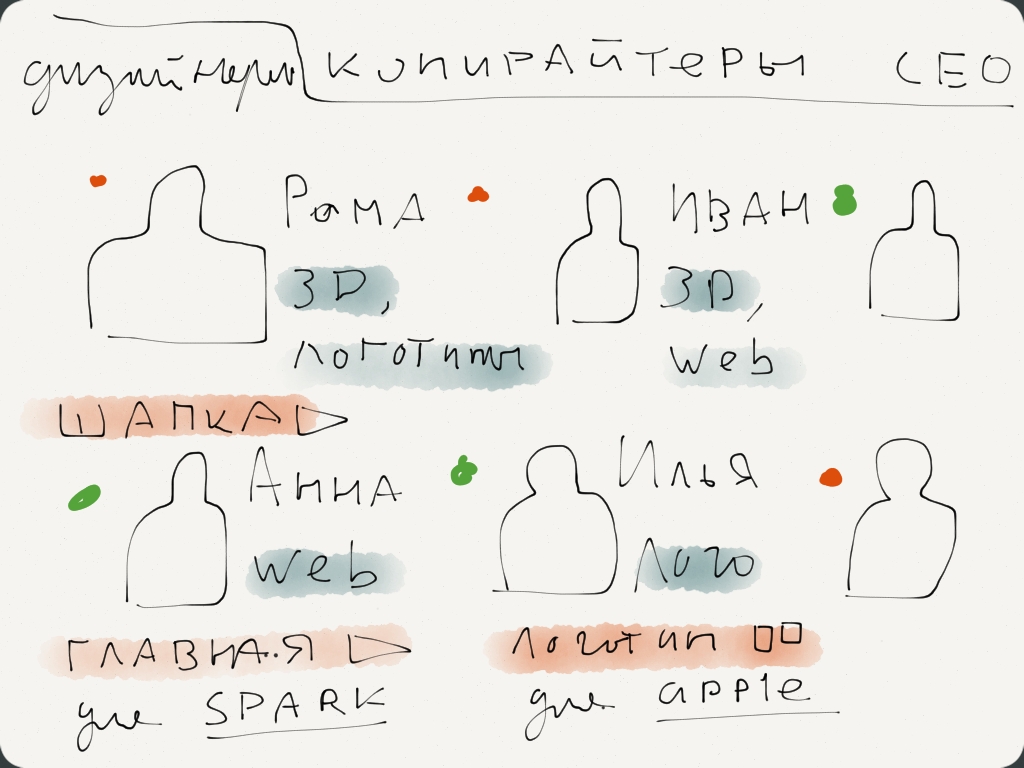 дизайнеры КОПИРАЙТЕРЫ CEO
Рома
3D,
логотипы
ИВАН
3D,
web
ШАПКА
Анна
web
ГЛАВНАЯ
для SPARK
Илья
Лого
Логотип
для apple